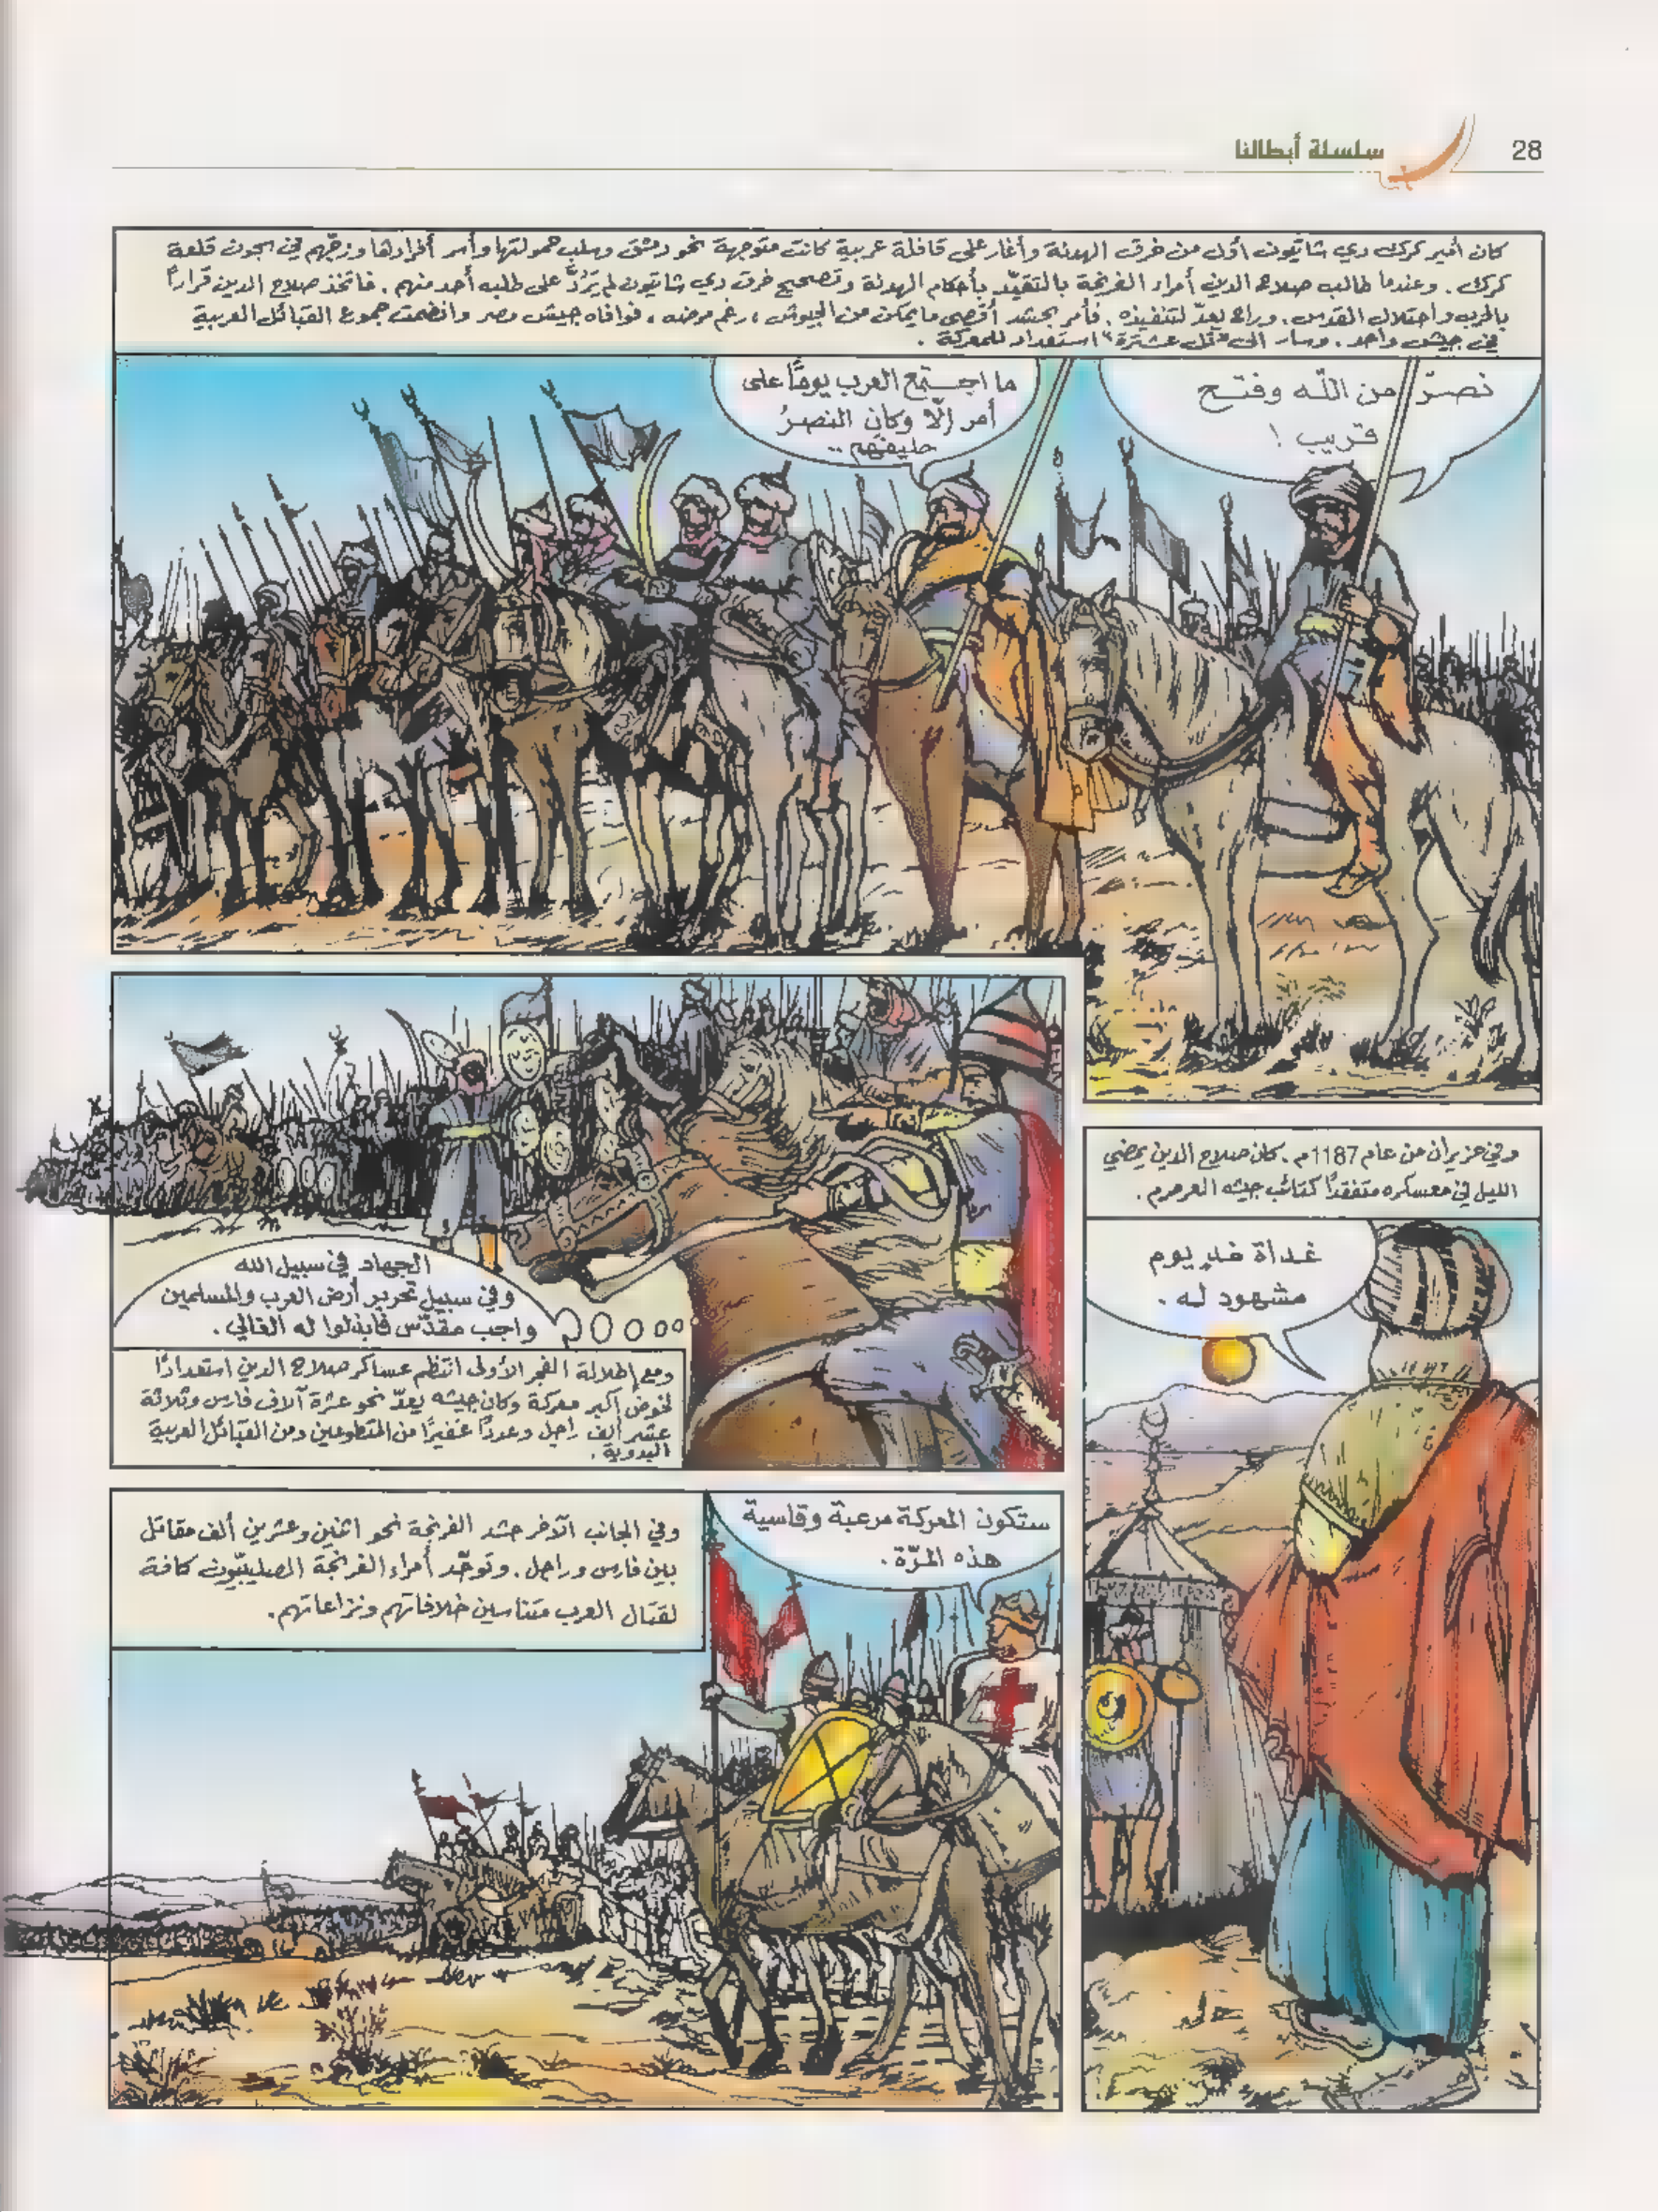 28
سلسلة أبطالنا
كان أمير كرك دي شاتيون أول من خرق الهدنة وأغار على قافلة عربية كانت متوجهة نحو دمشق وسلب حمولتها وأسر أفرادها وزجّهم في سجون قلعة
كرك. وعندما طالب صلاح الدين أمراء الفرنجة بالتقيّد بأحكام الهدنة وتصحيح خرق دي شاتيون لم يَرُدَّ على طلبه أحد منهم. فاتخذ صلاح الدين قراراً
بالحرب واحتلال القدس. وراح يعدّ لتنفيذه. فأمر بحشد أقصى ما يمكن من الجيوش، رغم مرضه، فوافاه جيش مصر وانضمت جموع القبائل العربية
في جيش واحد. وسار الى "تل عشترة" استعداد للمعركة.
نصرٌ من اللّه وفتح
قريب!
ما اجتمع العرب يومًا على
أمر إلّا وكان النصرُ
حليفهم..
وفي حزيران من عام 1187م. كان صلاح الدين يمضي
الليل في معسكره متفقدًا كتائب جيشه العرمرم.
غداة غدٍ يوم
مشهود له.
الجهاد في سبيل الله
وفي سبيل تحرير أرض العرب والمسلمين
واجب مقدّس فابذلوا له الغالي.
ومع إطلالة الفجر الأولى انتظم عساكر صلاح الدين استعدادًا
لخوض أكبر معركة وكان جيشه يعدّ نحو عشرة آلاف فارس وثلاثة
عشر ألف راجل وعددًا غفيرًا من المتطوعين ومن القبائل العربية
البدوية.
ستكون المعركة مرعبة وقاسية
هذه المرّة.
وفي الجانب الآخر حشد الفرنجة نحو اثنين وعشرين ألف مقاتل
بين فارس وراجل. وتوحّد أمراء الفرنجة الصليبيّون كافة
لقتال العرب متناسين خلافاتهم ونزاعاتهم.